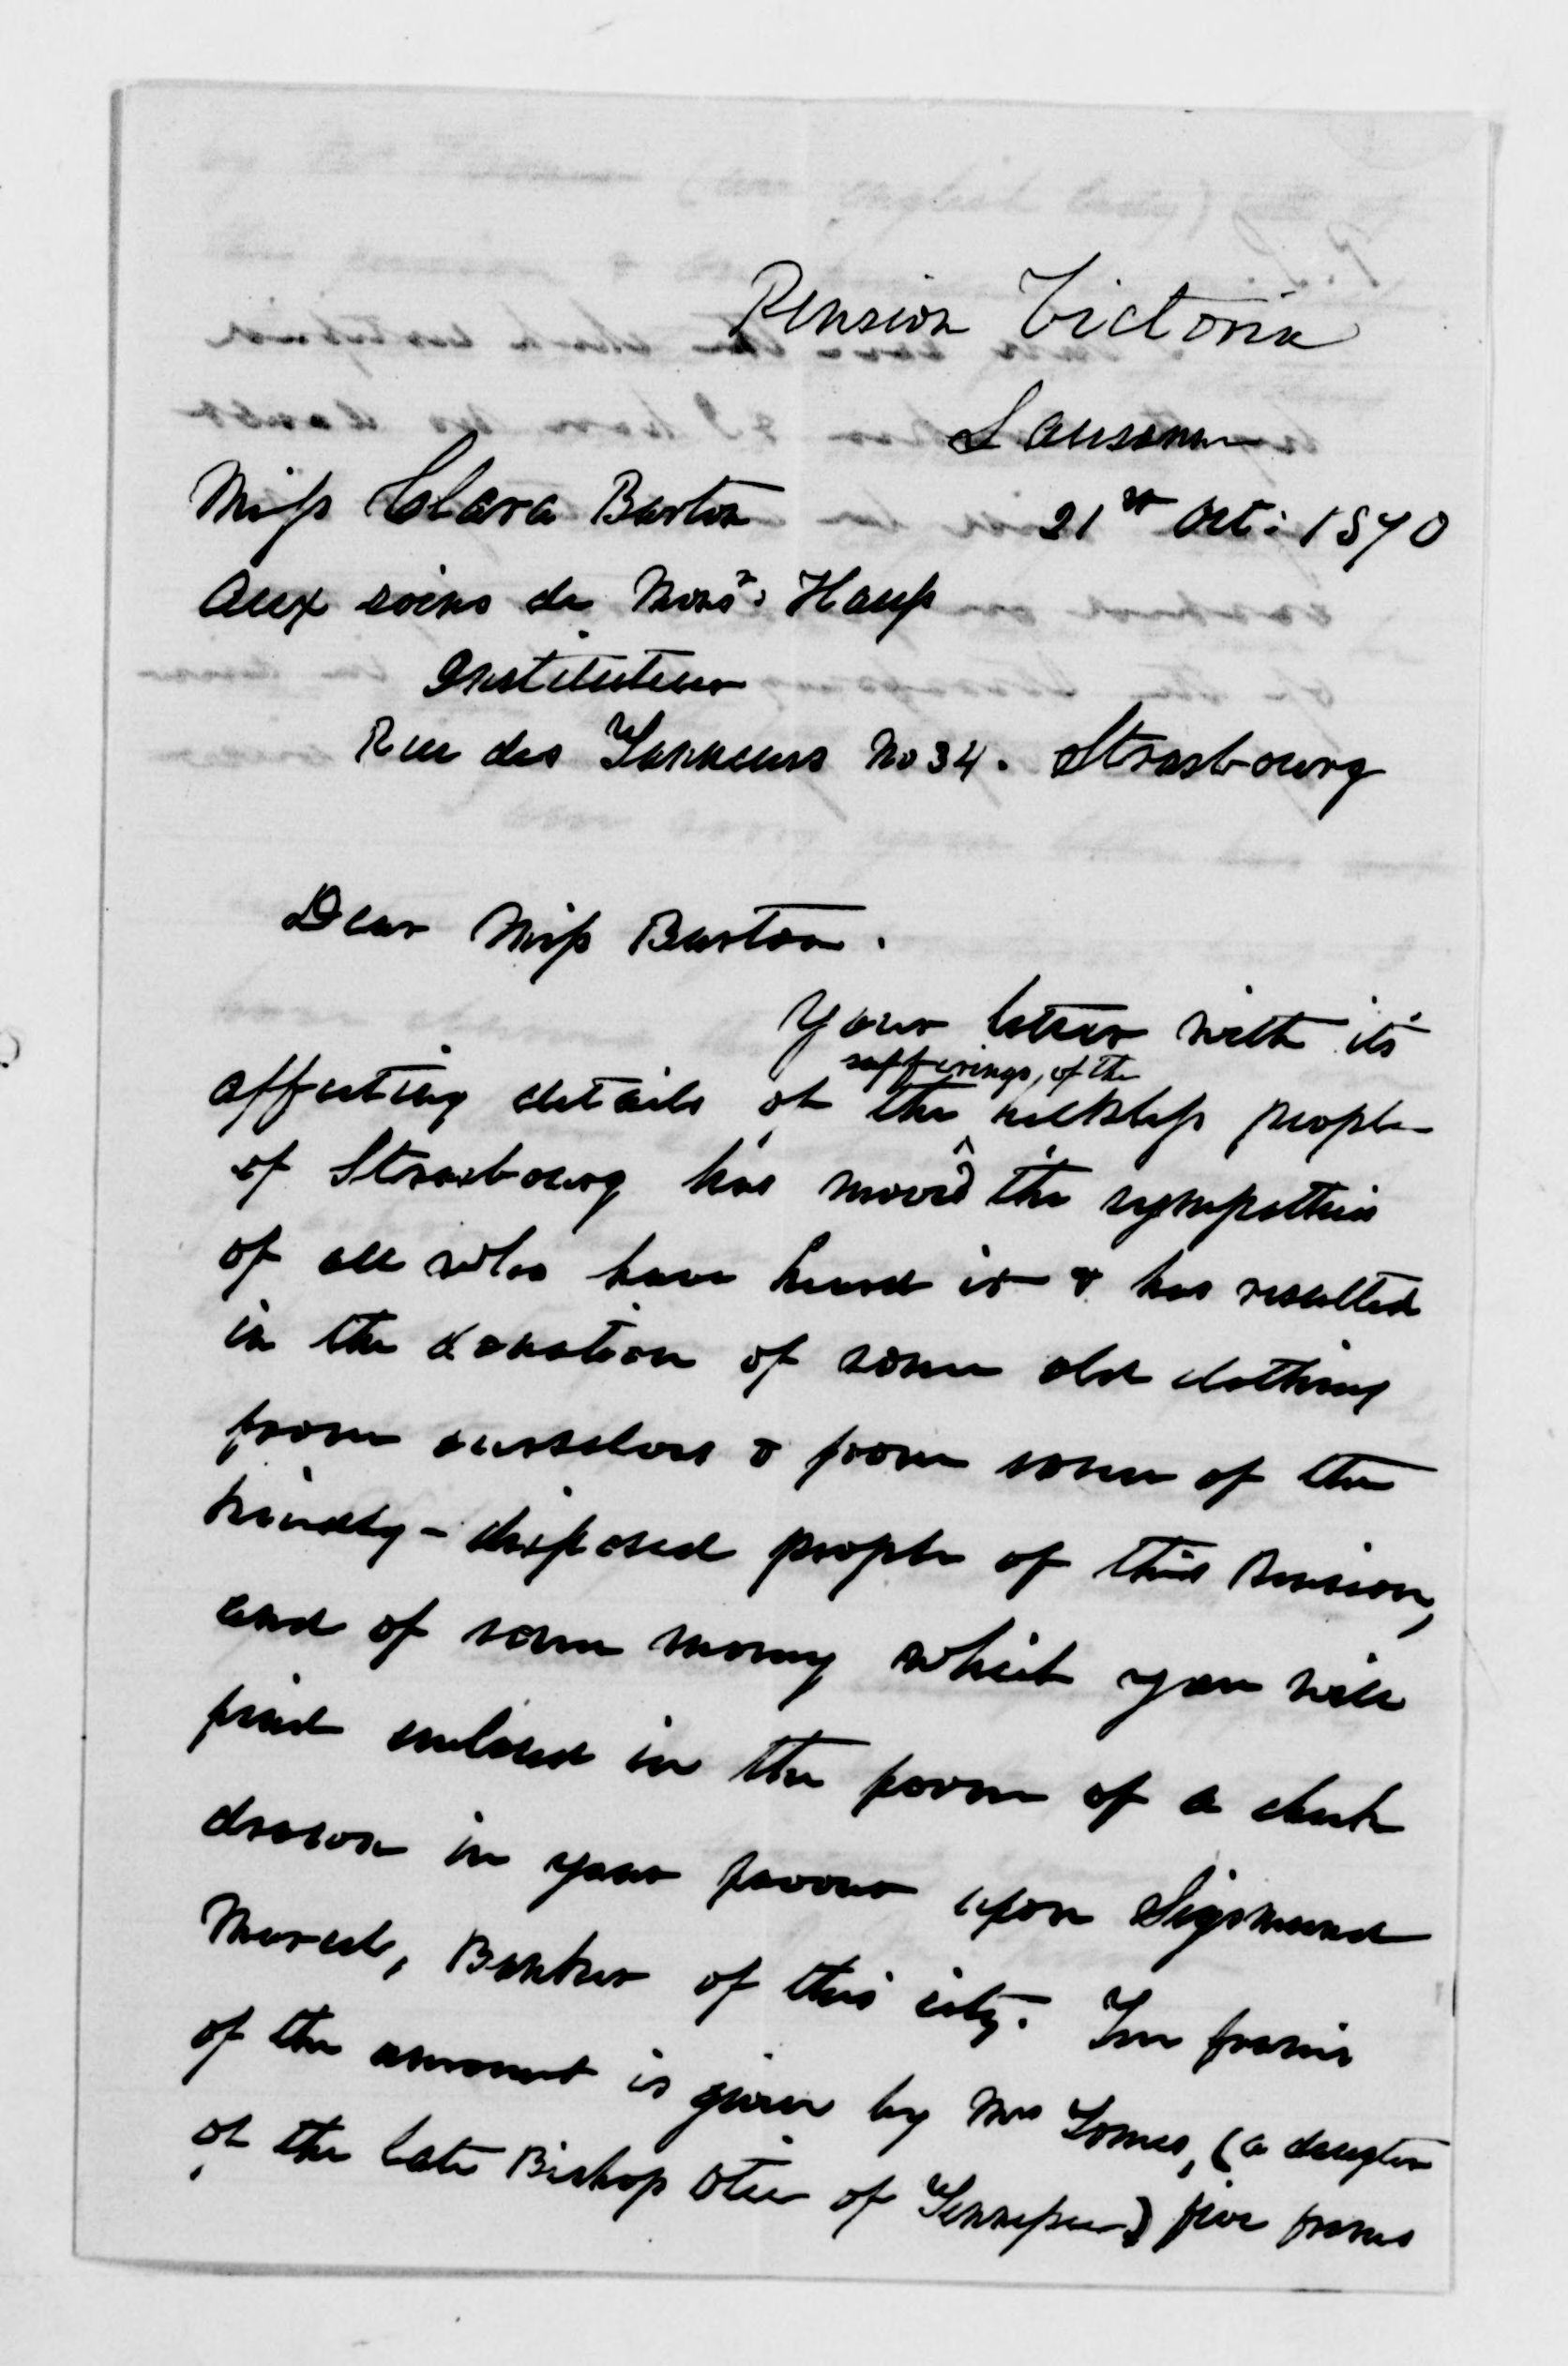 Pension Victoria
Lausanne
Miss Clara Barton 21st Oct: 1870
Aux soins de Monsr: Haup
Instituteur
Rue des Tanneurs No 34. Strasbourg
Dear Miss Barton.
Your letter with its
sufferings, of the
affecting details of the luckless people
of Strasbourg has moved the sympathies
of all who have heard it & has resulted
in the donation of some old clothing
from ourselves & from some of the
kindly-disposed people of this Pension,
and of some money which you will
find enclosed in the form of a check
drawn in your favour upon Sigismund
Marcel, Banker of this city. Ten francs
of the amount is given by Mrs Tomes, (a daughter
of the late Bishop Otie of Tennessee) five francs